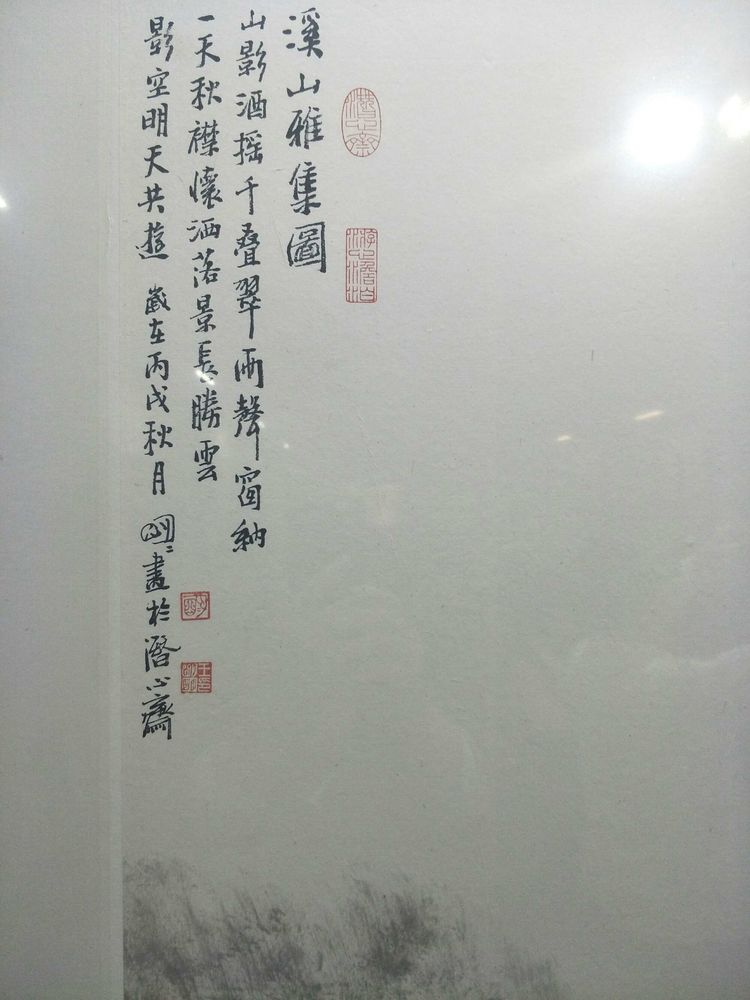 潛心齋
游心澹泊
溪山雅集圖
山影酒摇千叠翠雨聲窗納
一天秋襟懷洒落景長勝雲
影空明天共遊 歲在丙戌秋月 畫於潛心齋